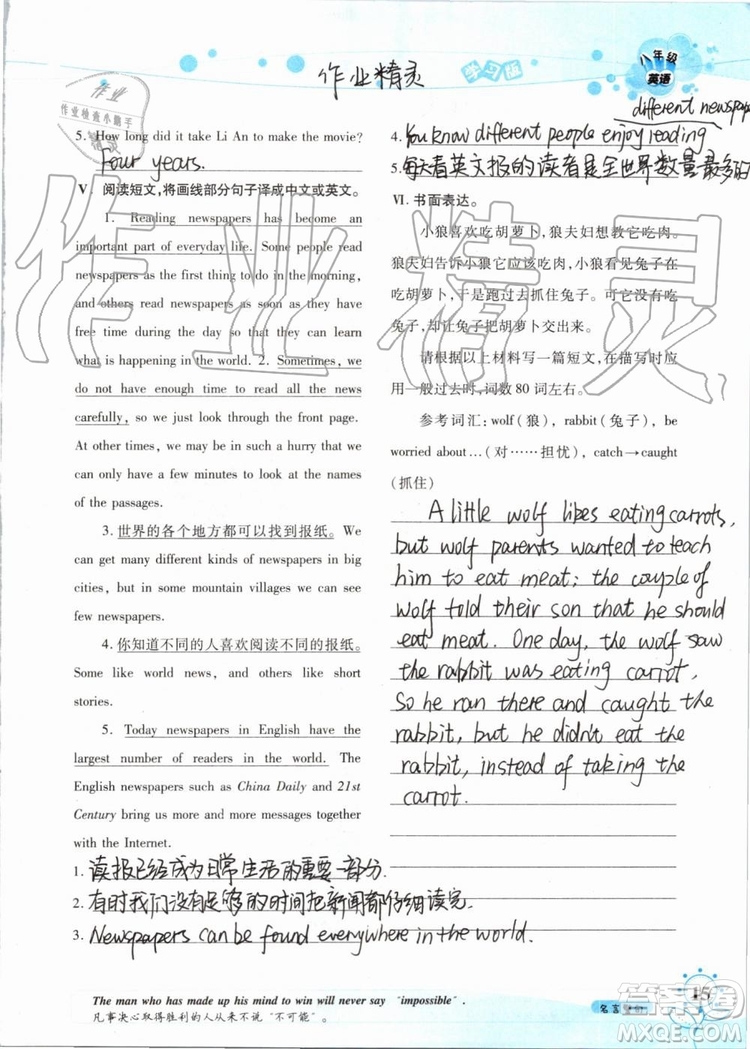 作业精灵
学习版
八年级
英语
作业
作业检查小助手
精灵
5. How long did it take Li An to make the movie?
Four years.
Ⅴ. 阅读短文,将画线部分句子译成中文或英文。
1. Reading newspapers has become an
important part of everyday life. Some people read
newspapers as the first thing to do in the morning,
and others read newspapers as soon as they have
free time during the day so that they can learn
what is happening in the world. 2. Sometimes, we
do not have enough time to read all the news
carefully, so we just look through the front page.
At other times, we may be in such a hurry that we
only have a few minutes to look at the names
of the passages.
3. 世界的各个地方都可以找到报纸。We
can get many different kinds of newspapers in big
cities, but in some mountain villages we can see
few newspapers.
4. 你知道不同的人喜欢阅读不同的报纸。
Some like world news, and others like short
stories.
5. Today newspapers in English have the
largest number of readers in the world. The
English newspapers such as China Daily and 21st
Century bring us more and more messages together
with the Internet.
1. 读报已经成为日常生活的重要一部分.
2. 有时我们没有足够的时间把新闻都仔细读完.
3. Newspapers can be found everywhere in the world.
different newspape
4. You know different people enjoy reading
5. 每天看英文报的读者是全世界数量最多的
Ⅵ. 书面表达。
小狼喜欢吃胡萝卜,狼夫妇想教它吃肉。
狼夫妇告诉小狼它应该吃肉。小狼看见兔子在
吃胡萝卜,于是跑过去抓住兔子。可它没有吃
兔子,却让兔子把胡萝卜交出来。
请根据以上材料写一篇短文,在描写时应
用一般过去时,词数 80 词左右。
参考词汇:wolf(狼),rabbit(兔子),be
worried about…(对……担忧),catch→caught
(抓住)
A little wolf likes eating carrots,
but wolf parents wanted to teach
him to eat meat; the couple of
wolf told their son that he should
eat meat. One day, the wolf saw
the rabbit was eating carrot.
So he there and caught the
rabbit, but he didn't eat the
rabbit, instead of taking the
carrot.
The man who has made up his mind to win will never say "impossible".
凡事决心取得胜利的人从来不说"不可能"。
名言
15
答案圈
MXQE.COM